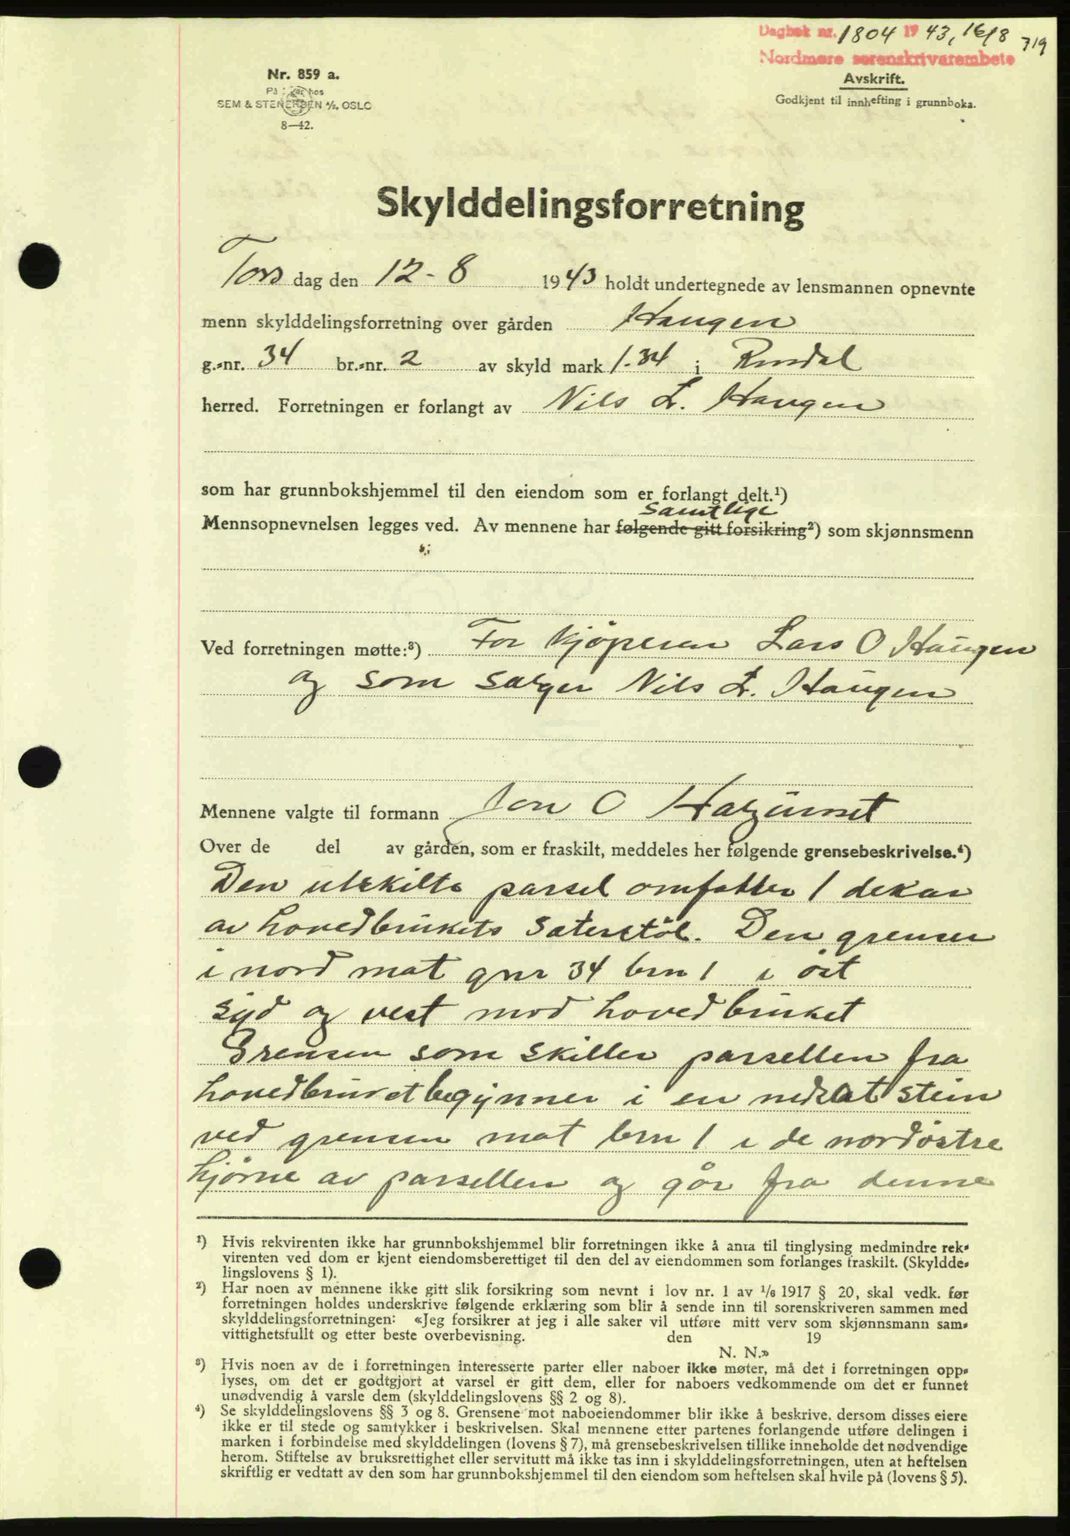 Dagbok nr. 1804 1943, 16/8 719
Nordmøre sorenskrivarembete
Nr. 859 a.
SEM & STENERSEN A/S, OSLO
8—42.
Avskrift.
Godkjent til innhefting i grunnboka.
Skylddelingsforretning
Tors dag den 12-8 1943 holdt undertegnede av lensmannen opnevnte
menn skylddelingsforretning over gården Haugen
g.-nr. 34 br.-nr. 2 av skyld mark 1.34 i Rindal
herred. Forretningen er forlangt av Nils L. Haugen
som har grunnbokshjemmel til den eiendom som er forlangt delt.¹)
samtlige
Mennsopnevnelsen legges ved. Av mennene har følgende gitt forsikring²) som skjønnsmenn
Ved forretningen møtte:³) For kjöperen Lars O Haugen
og som selger Nils L. Haugen
Mennene valgte til formann Jon O
Over de del av gården, som er fraskilt, meddeles her følgende grensebeskrivelse.⁴)
Den utskilte parsel omfatter 1 dekar
av hovedbrukets Seterstöl. Den grenser
i nord mot gnr 34 brn 1 i öst
syd og vest mod hovedbruket
Grensen som skiller parsellen fra
hovedbruket begynner i en nedsat stein
ved grensen mot brn 1 i de nordöstre
hjørne av parsellen og går fra denne
¹) Hvis rekvirenten ikke har grunnbokshjemmel blir forretningen ikke å anta til tinglysing medmindre rek-
virenten ved dom er kjent eiendomsberettiget til den del av eiendommen som forlanges fraskilt. (Skyldde-
lingslovens § 1).
²) Har noen av mennene ikke gitt slik forsikring som nevnt i lov nr. 1 av 1/6 1917 § 20, skal vedk. før
forretningen holdes underskrive følgende erklæring som blir å sende inn til sorenskriveren sammen med
skylddelingsforretningen: «Jeg forsikrer at jeg i alle saker vil utføre mitt verv som skjønnsmann sam-
vittighetsfullt og etter beste overbevisning. den 19
N. N.»
³) Hvis noen av de i forretningen interesserte parter eller naboer ikke møter, må det i forretningen opp-
lyses, om det er godtgjort at varsel er gitt dem, eller for naboers vedkommende om det er funnet
unødvendig å varsle dem (skylddelingslovens §§ 2 og 8).
⁴) Se skylddelingslovens §§ 3 og 8. Grensene mot naboeiendommer blir ikke å beskrive, dersom disses eiere
ikke er til stede og samtykker i beskrivelsen. Skal mennene etter partenes forlangende utføre delingen i
marken i forbindelse med skylddelingen (lovens § 7), må grensebeskrivelsen tillike inneholde det nødvendige
herom. Stiftelse av bruksrettighet eller servitutt må ikke tas inn i skylddelingsforretningen, uten at heftelsen
skriftlig er vedtatt av den som har grunnbokshjemmel til den eiendom som heftelsen skal hvile på (lovens § 5).